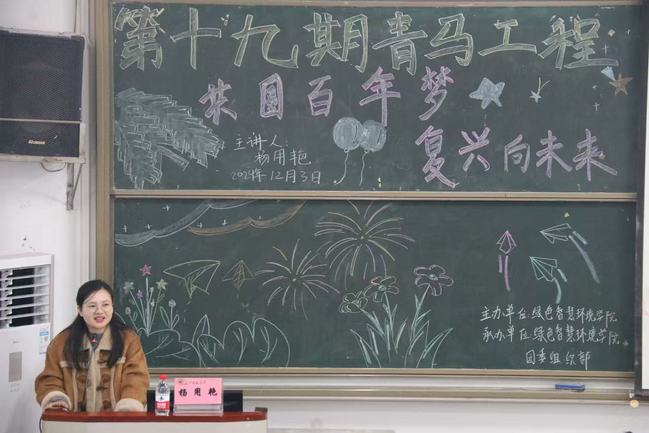 第十九期青马工程
共圆百年梦
复兴向未来
主讲人:
杨用艳
2024年12月3日
主办单位:绿色智慧环境学院
承办单位:绿色智慧环境学院
团委组织部
杨用艳